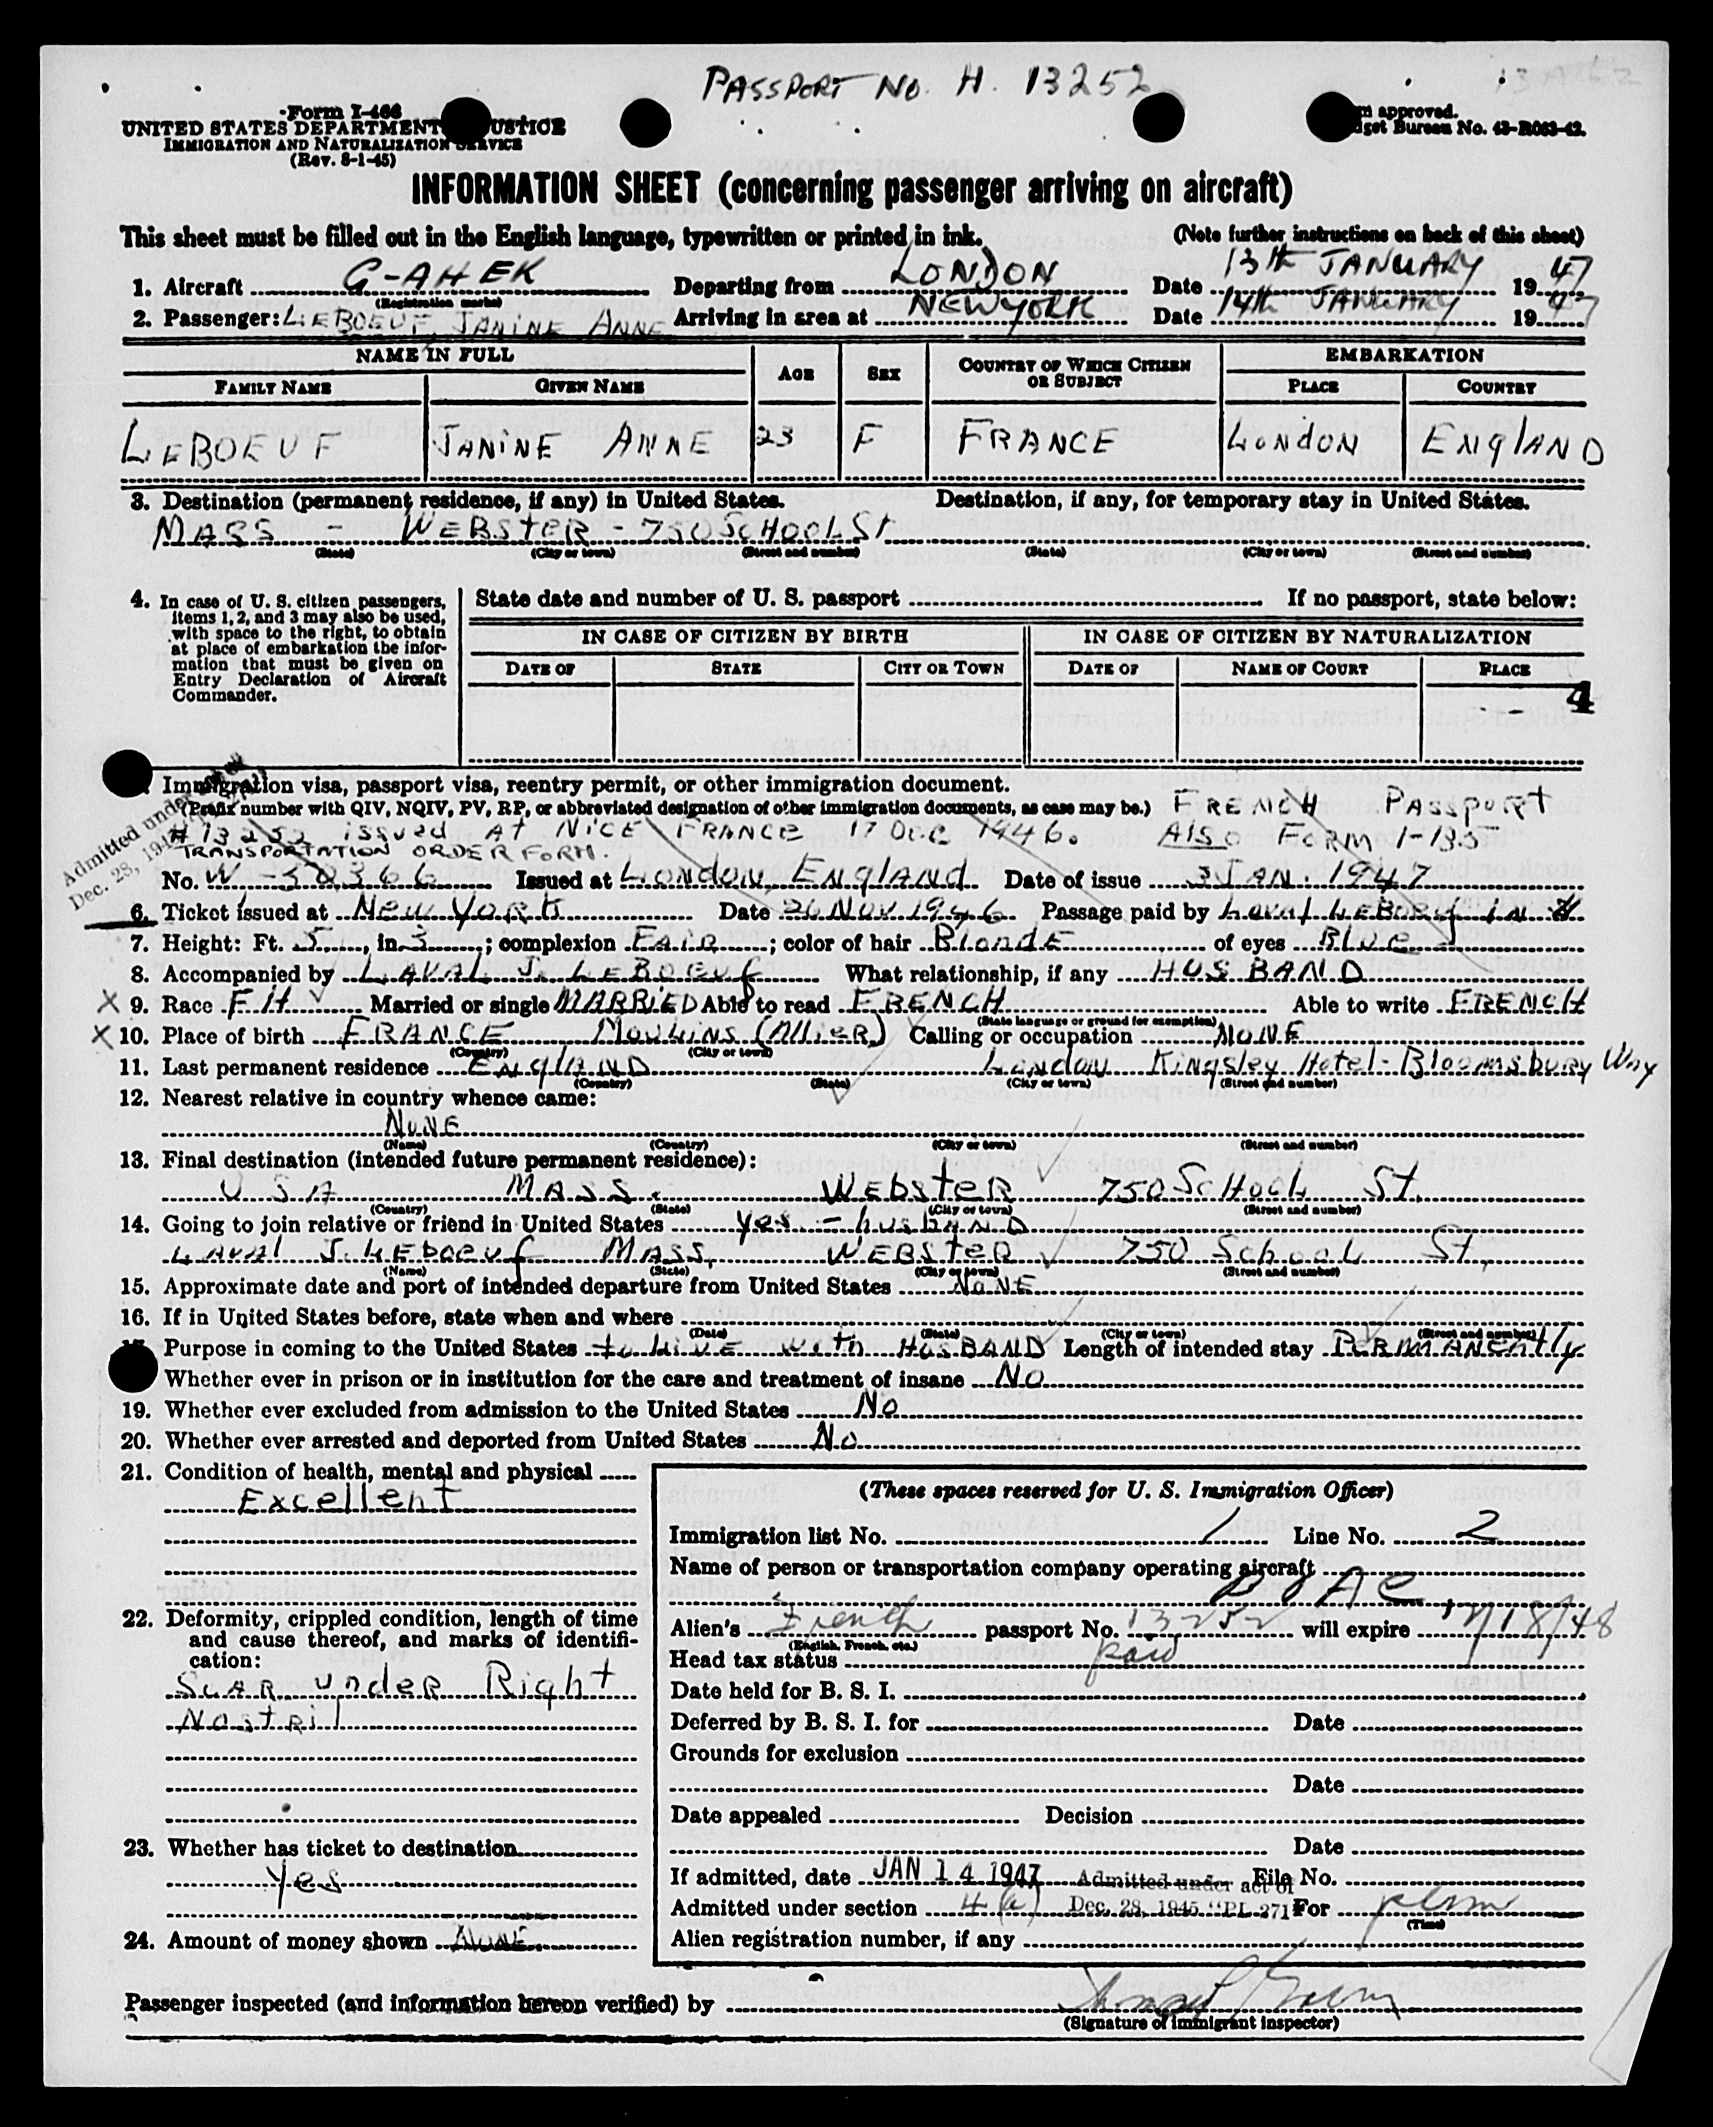 PASSPORT NO. H. 13252
Form I-466
UNITED STATES DEPARTMENT JUSTICE
IMMIGRATION AND NATURALIZATION SERVICE
(Rev. 8-1-45)
approved.
Budget Bureau No. 43-R063-42.
INFORMATION SHEET (concerning passenger arriving on aircraft)
This sheet must be filled out in the English language, typewritten or printed in ink. (Note further instructions on back of this sheet)
1. Aircraft G-AHEK Departing from LONDON Date 13th JANUARY 1947
(Registration marks)
2. Passenger: LEBOEUF, JANINE ANNE Arriving in area at NEW YORK Date 14th JANUARY 1947
NAME IN FULL AGE SEX COUNTRY OF WHICH CITIZEN OR SUBJECT EMBARKATION
FAMILY NAME GIVEN NAME PLACE COUNTRY
LEBOEUF JANINE ANNE 23 F FRANCE LONDON ENGLAND
3. Destination (permanent residence, if any) in United States. Destination, if any, for temporary stay in United States.
MASS - WEBSTER - 750 SCHOOL St
(State) (City or town) (Street and number) (State) (City or town) (Street and number)
4. In case of U. S. citizen passengers, items 1, 2, and 3 may also be used, with space to the right, to obtain at place of embarkation the information that must be given on Entry Declaration of Aircraft Commander.
State date and number of U. S. passport If no passport, state below:
IN CASE OF CITIZEN BY BIRTH IN CASE OF CITIZEN BY NATURALIZATION
DATE OF STATE CITY OR TOWN DATE OF NAME OF COURT PLACE
4
Admitted under
Dec. 28, 194
Immigration visa, passport visa, reentry permit, or other immigration document.
(Prefix number with QIV, NQIV, PV, RP, or abbreviated designation of other immigration documents, as case may be.) FRENCH PASSPORT
# 13252 issued AT NICE FRANCE 17 DEC 1946. Also FORM I-135
TRANSPORTATION ORDER FORM.
No. W-50366 Issued at LONDON, ENGLAND Date of issue 3 JAN. 1947
6. Ticket issued at New YORK Date 26 NOV 1946 Passage paid by Laval LEBOEUF IN $
7. Height: Ft. 5, in. 3; complexion FAIR; color of hair BLONDE of eyes BLUE
8. Accompanied by LAVAL J. LEBOEUF What relationship, if any HUSBAND
X 9. Race FH Married or single MARRIED Able to read FRENCH Able to write FRENCH
(State language or ground for exemption)
X 10. Place of birth FRANCE MOULINS (Allier) Calling or occupation NONE
(Country) (City or town)
11. Last permanent residence ENGLAND London Kingsley Hotel - Bloomsbury Way
(Country) (State) (City or town) (Street and number)
12. Nearest relative in country whence came:
NONE
(Name) (Country) (City or town) (Street and number)
13. Final destination (intended future permanent residence):
USA MASS. Webster 750 School St.
(Country) (State) (City or town) (Street and number)
14. Going to join relative or friend in United States Yes - husband
Laval J. LEBOEUF MASS, WEBSTER 750 School St,
(Name) (State) (City or town) (Street and number)
15. Approximate date and port of intended departure from United States NONE
16. If in United States before, state when and where
(Date) (State) (City or town) (Street and number)
Purpose in coming to the United States to Live with HUSBAND Length of intended stay PERMANENTLY
Whether ever in prison or in institution for the care and treatment of insane No
19. Whether ever excluded from admission to the United States No
20. Whether ever arrested and deported from United States No
21. Condition of health, mental and physical
Excellent
22. Deformity, crippled condition, length of time and cause thereof, and marks of identification:
Scar under Right
Nostril
23. Whether has ticket to destination
Yes
24. Amount of money shown NONE
(These spaces reserved for U. S. Immigration Officer)
Immigration list No. 1 Line No. 2
Name of person or transportation company operating aircraft
BOAC
Alien's French passport No. 13252 will expire 12/18/48
(English, French, etc.)
Head tax status paid
Date held for B. S. I.
Deferred by B. S. I. for Date
Grounds for exclusion
Date
Date appealed Decision
Date
If admitted, date JAN 14 1947 Admitted under act of File No.
Admitted under section 4(a) Dec. 28, 1945 "PL 271 For perm
(Time)
Alien registration number, if any
Passenger inspected (and information hereon verified) by
(Signature of immigrant inspector)